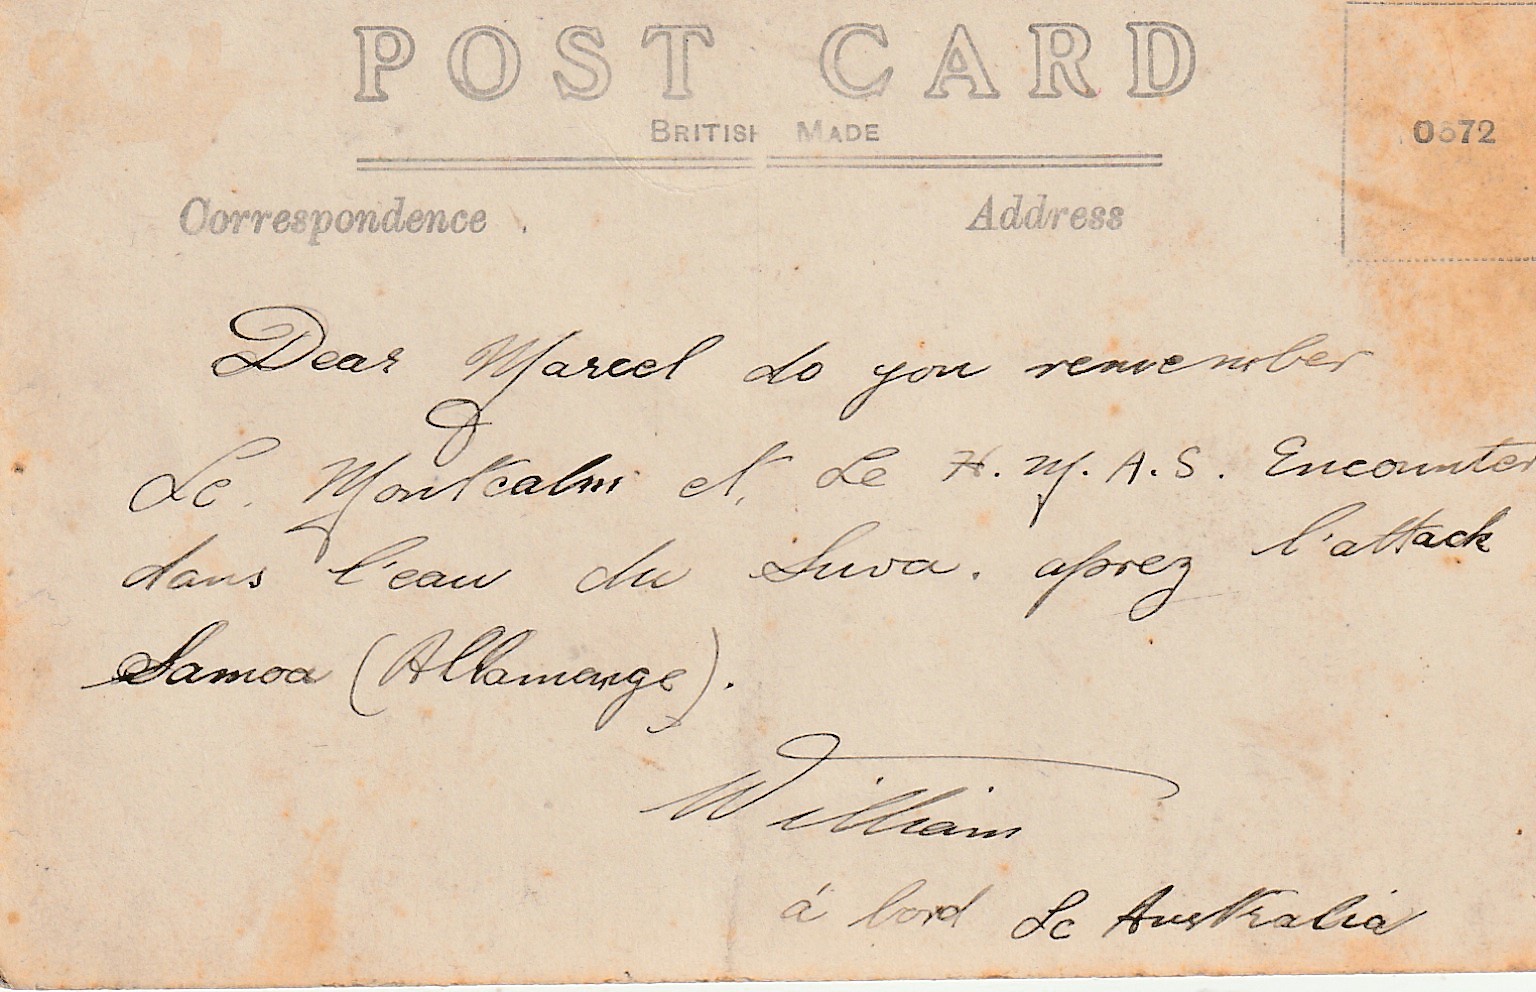 POST CARD
BRITISH MADE
Correspondence.
Address
0872
Dear Marcel do you remember
Le Montcalm et Le H.M.A.S. Encounter
dans l'eau du Suva. aprez l'attack
Samoa (Allamange).
William
á bord Le Australia